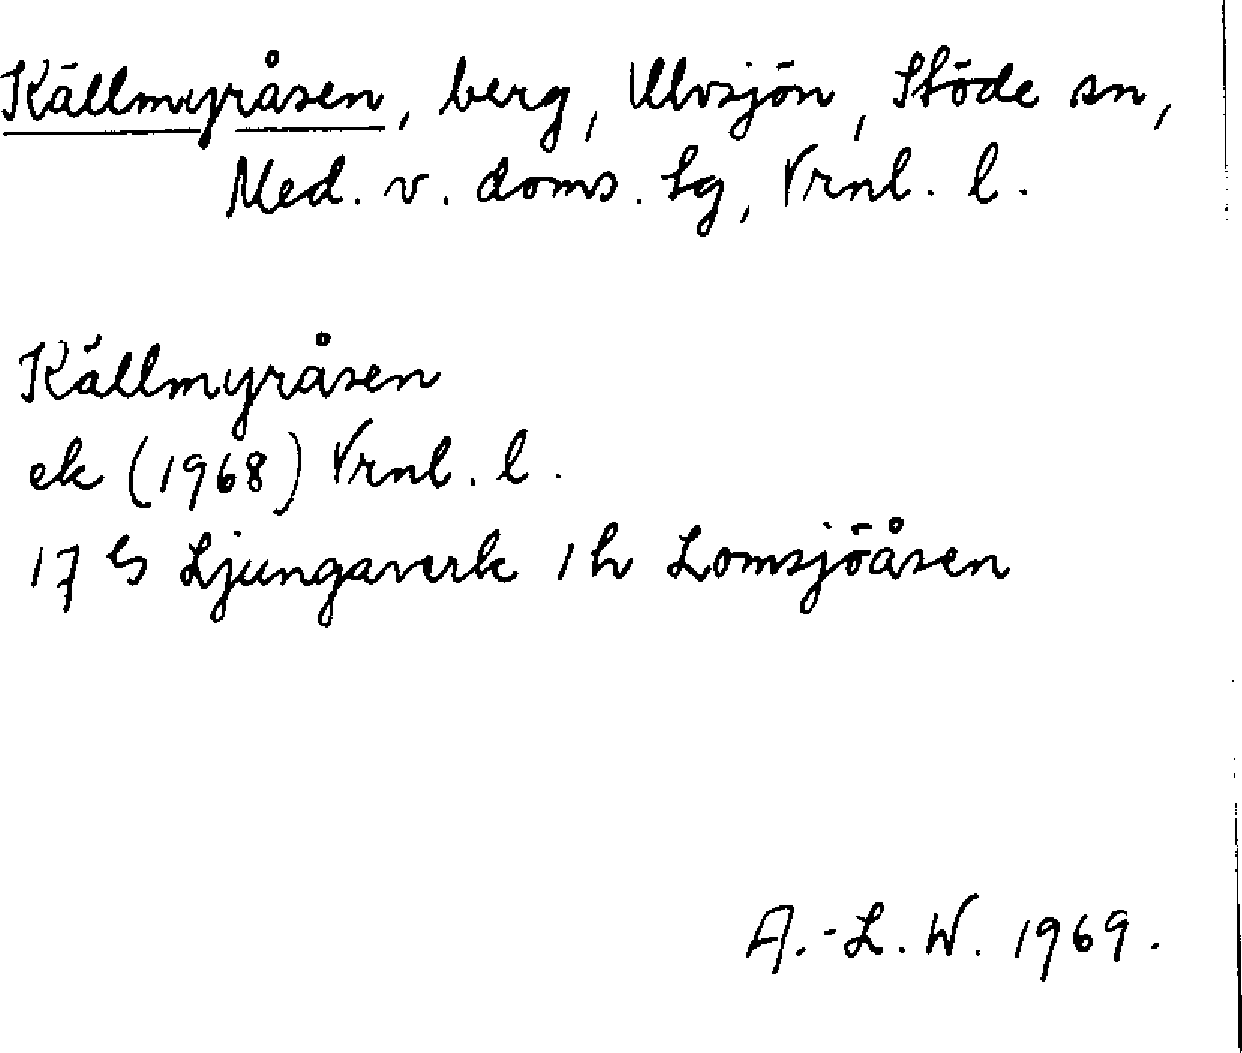 Källmyråsen, berg, Ulvsjön, Stöde sn,
Med. v. doms. tg, Vrnl. l.
Källmyråsen
ek (1968) Vrnl. l.
17 G Ljungaverk 1 h Lomsjöåsen
A.-L. W. 1969.